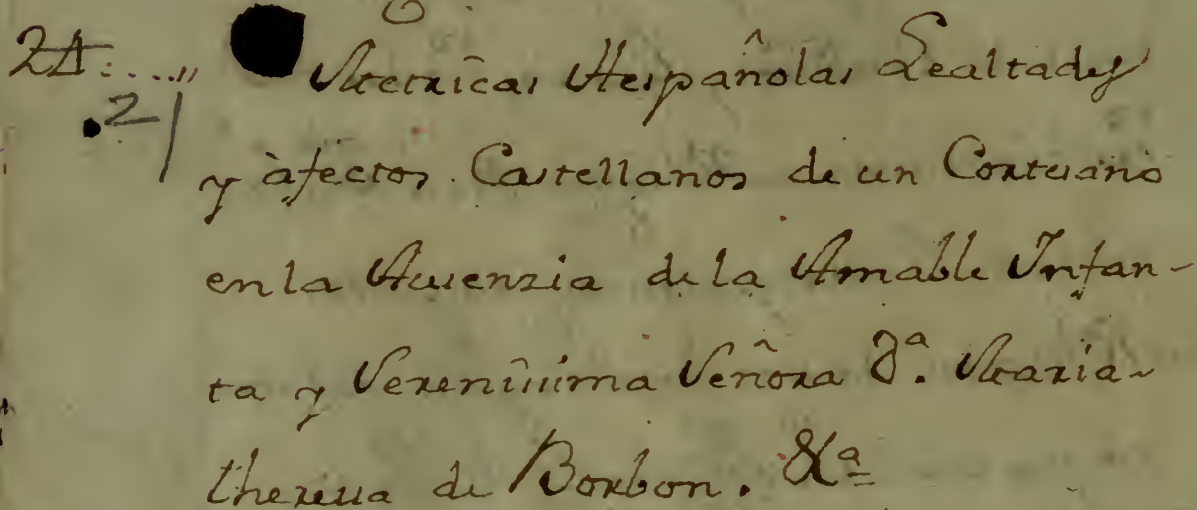 21
Metricas Hespañolas Lealtades
y àfectos Castellanos de un Cortesano
en la Ausenzia de la Amable Infan-
ta y Serenissima Señora D.ª Maria
theresa de Borbon. &ª